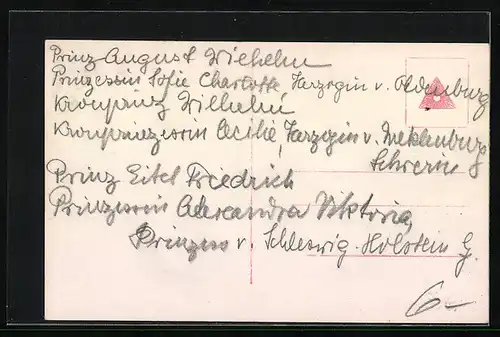 Prinz August Wilhelm
Prinzessin Sofie Charlotte, Herzogin v. Oldenburg
Kronprinz Wilhelm
Kronprinzessin Cecilie, Herzogin v. Meklenburg
Schwerin
Prinz Eitel Friedrich
Prinzessin Alexandra Viktoria,
Prinzess v. Schleswig-Holstein G.
6-